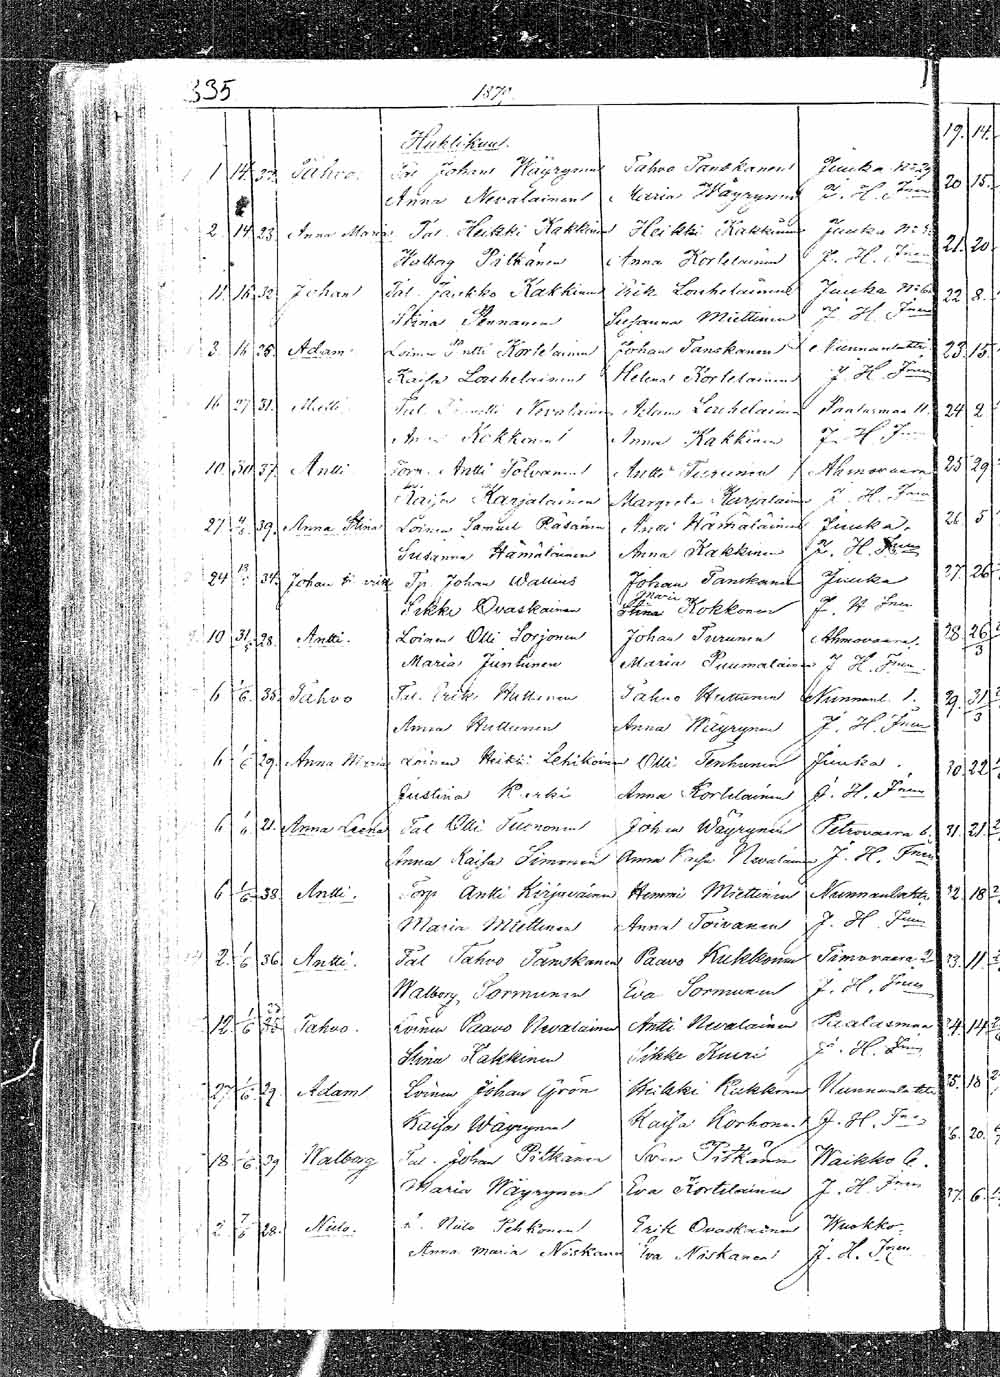 335 1879.
Huhtikuu.
1 14. Tahvo. Tal. Johan Wäyrynen Tahvo Tanskanen Juuka
Anna Nevalainen Maria Wäyrynen J. H. Inen
2 14 23 Anna Maria Tal. Heikki Kakkinen Heikki Kakkinen Juuka
Walborg Pitkänen Anna Kortelainen J. H. Inen
11. 16 32 Johan Tal. Jaakko Kakkinen Erik Louhelainen Juuka
Stina Pennanen Susanna Miettinen J. H. Inen
3. 16 Adam Loinen Antti Kortelainen Johan Tanskanen Nunnanlahti
Kaisa Louhelainen Helena Kortelainen J. H. Inen
16 27 31. Matti Tal. Nevalainen Adam Louhelainen Paalasmaa 11.
Anna Kokkonen Anna Kakkinen J. H. Inen
10 30 37. Antti Torp. Antti Tolvanen Antti Turunen Ahmovaara
Kaisa Karjalainen Margreta Karjalainen J. H. Inen
27 39. Anna Stina Loinen Samuel Räsänen Antti Hämäläinen Juuka.
Susanna Hämäläinen Anna Kakkinen J. H. Inen
24 34. Johan Tp. Johan Wallius Johan Tanskanen Juuka
Maria
Sikke Ovaskainen Stina Kokkonen J. H. Inen
10 31/5 28. Antti. Loinen Olli Sorjonen Johan Turunen Ahmovaara.
Maria Juntunen Maria Puumalainen J. H. Inen
6 1/6. 35. Tahvo Tal. Erik Huttunen Tahvo Huttunen Nunnanl. 1.
Anna Huttunen Anna Wäyrynen J. H. Inen
6 1/6 29. Anna Maria Loinen Heikki Lehikoinen Olli Tenhunen Juuka.
Justina Kurki Anna Kortelainen J. H. Inen
6 1/6 21. Anna Leena Tal Olli Johan Wäyrynen Petrovaara 6.
Anna Kaisa Simonen Anna Kaisa Nevalainen J. H. Inen
6 1/6 38. Antti. Torp Antti Kirjavainen Hemmi Miettinen Nunnanlahti
Maria Miettinen Anna Toivanen J. H. Inen
2. 1/6 36. Antti. Tal Tahvo Tanskanen Paavo Kukkonen Timovaara 2
Walborg Sormunen Eva Sormunen J. H. Inen
12 1/6 Tahvo. Loinen Paavo Nevalainen Antti Nevalainen Paalasmaa
Stina Kakkinen Sikke Kuiri J. H. Inen
27 1/6 29. Adam Loinen Johan Grön Heikki Kukkonen Nunnanlahti
Kaisa Wäyrynen Kaisa Korhonen J. H. Inen
18 1/6 39 Walborg Tal. Johan Pitkänen Sven Pitkänen Waikko 6.
Maria Wäyrynen Eva Kortelainen J. H. Inen
2 7/6 28. Niilo. L. Niilo Pehkonen Erik Ovaskainen Wuokko.
Anna Maria Niiskanen Eva Niiskanen J. H. Inen
19. 14.
20 15.
21. 20.
22 8.
23. 15.
24 2
25 29
26 5
27. 26
28. 26/3
29. 31/3
30. 22
31. 21
32. 18
33. 11.
34. 14
35. 18
36. 20.
37. 6.